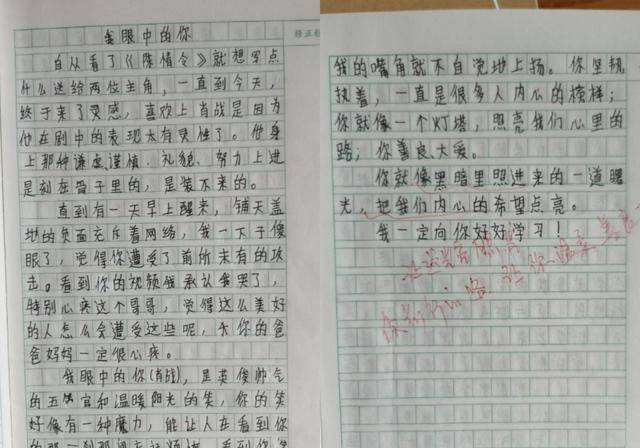 我眼中的你
自从看了《陈情令》就想写点
什么送给两位主角，一直到今天，
终于来了灵感，喜欢上肖战是因为
他在剧中的表现太有灵性了。他身
上那种谦虚谨慎、礼貌、努力上进
是刻在骨子里的，是装不来的。
直到有一天早上醒来，铺天盖
地的负面充斥着网络，我一下子傻
眼了，觉得你遭受了前所未有的攻
击。看到你的视频我承认我哭了，
特别心疼这个哥哥，觉得这么美好
的人怎么会遭受这些呢，你的爸
爸妈妈一定很心疼。
我眼中的你(肖战)，是英俊帅气
的五官和温暖阳光的笑，你的笑
好像有一种魔力，能让人在看到你
我的嘴角就不自觉地上扬。你坚韧
执着，一直是很多人内心的榜样；
你就像一个灯塔，照亮我们心里的
路；你善良、大爱。
你就像黑暗里照进来的一道曙
光，把我们内心的希望点亮。
我一定向你好好学习！